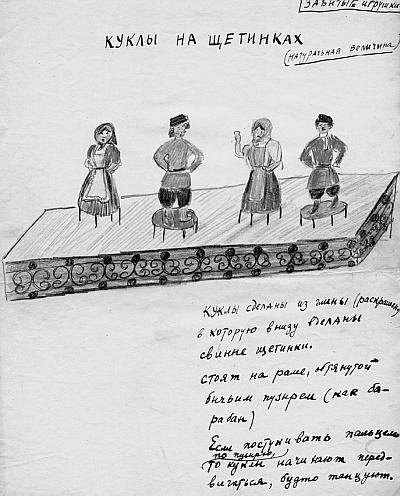 ЗАБЫТЫЕ игрушки
КУКЛЫ НА ЩЕТИНКАХ
(натуральная величина)
Куклы сделаны из глины (раскрашены)
в которую внизу вделаны
свиные щетинки.
стоят на раме, обтянутой
бычьим пузырем (как ба-
рабан)
Если постукивать пальцем
по пузырю,
то куклы начинают перед-
вигаться, будто танцуют.